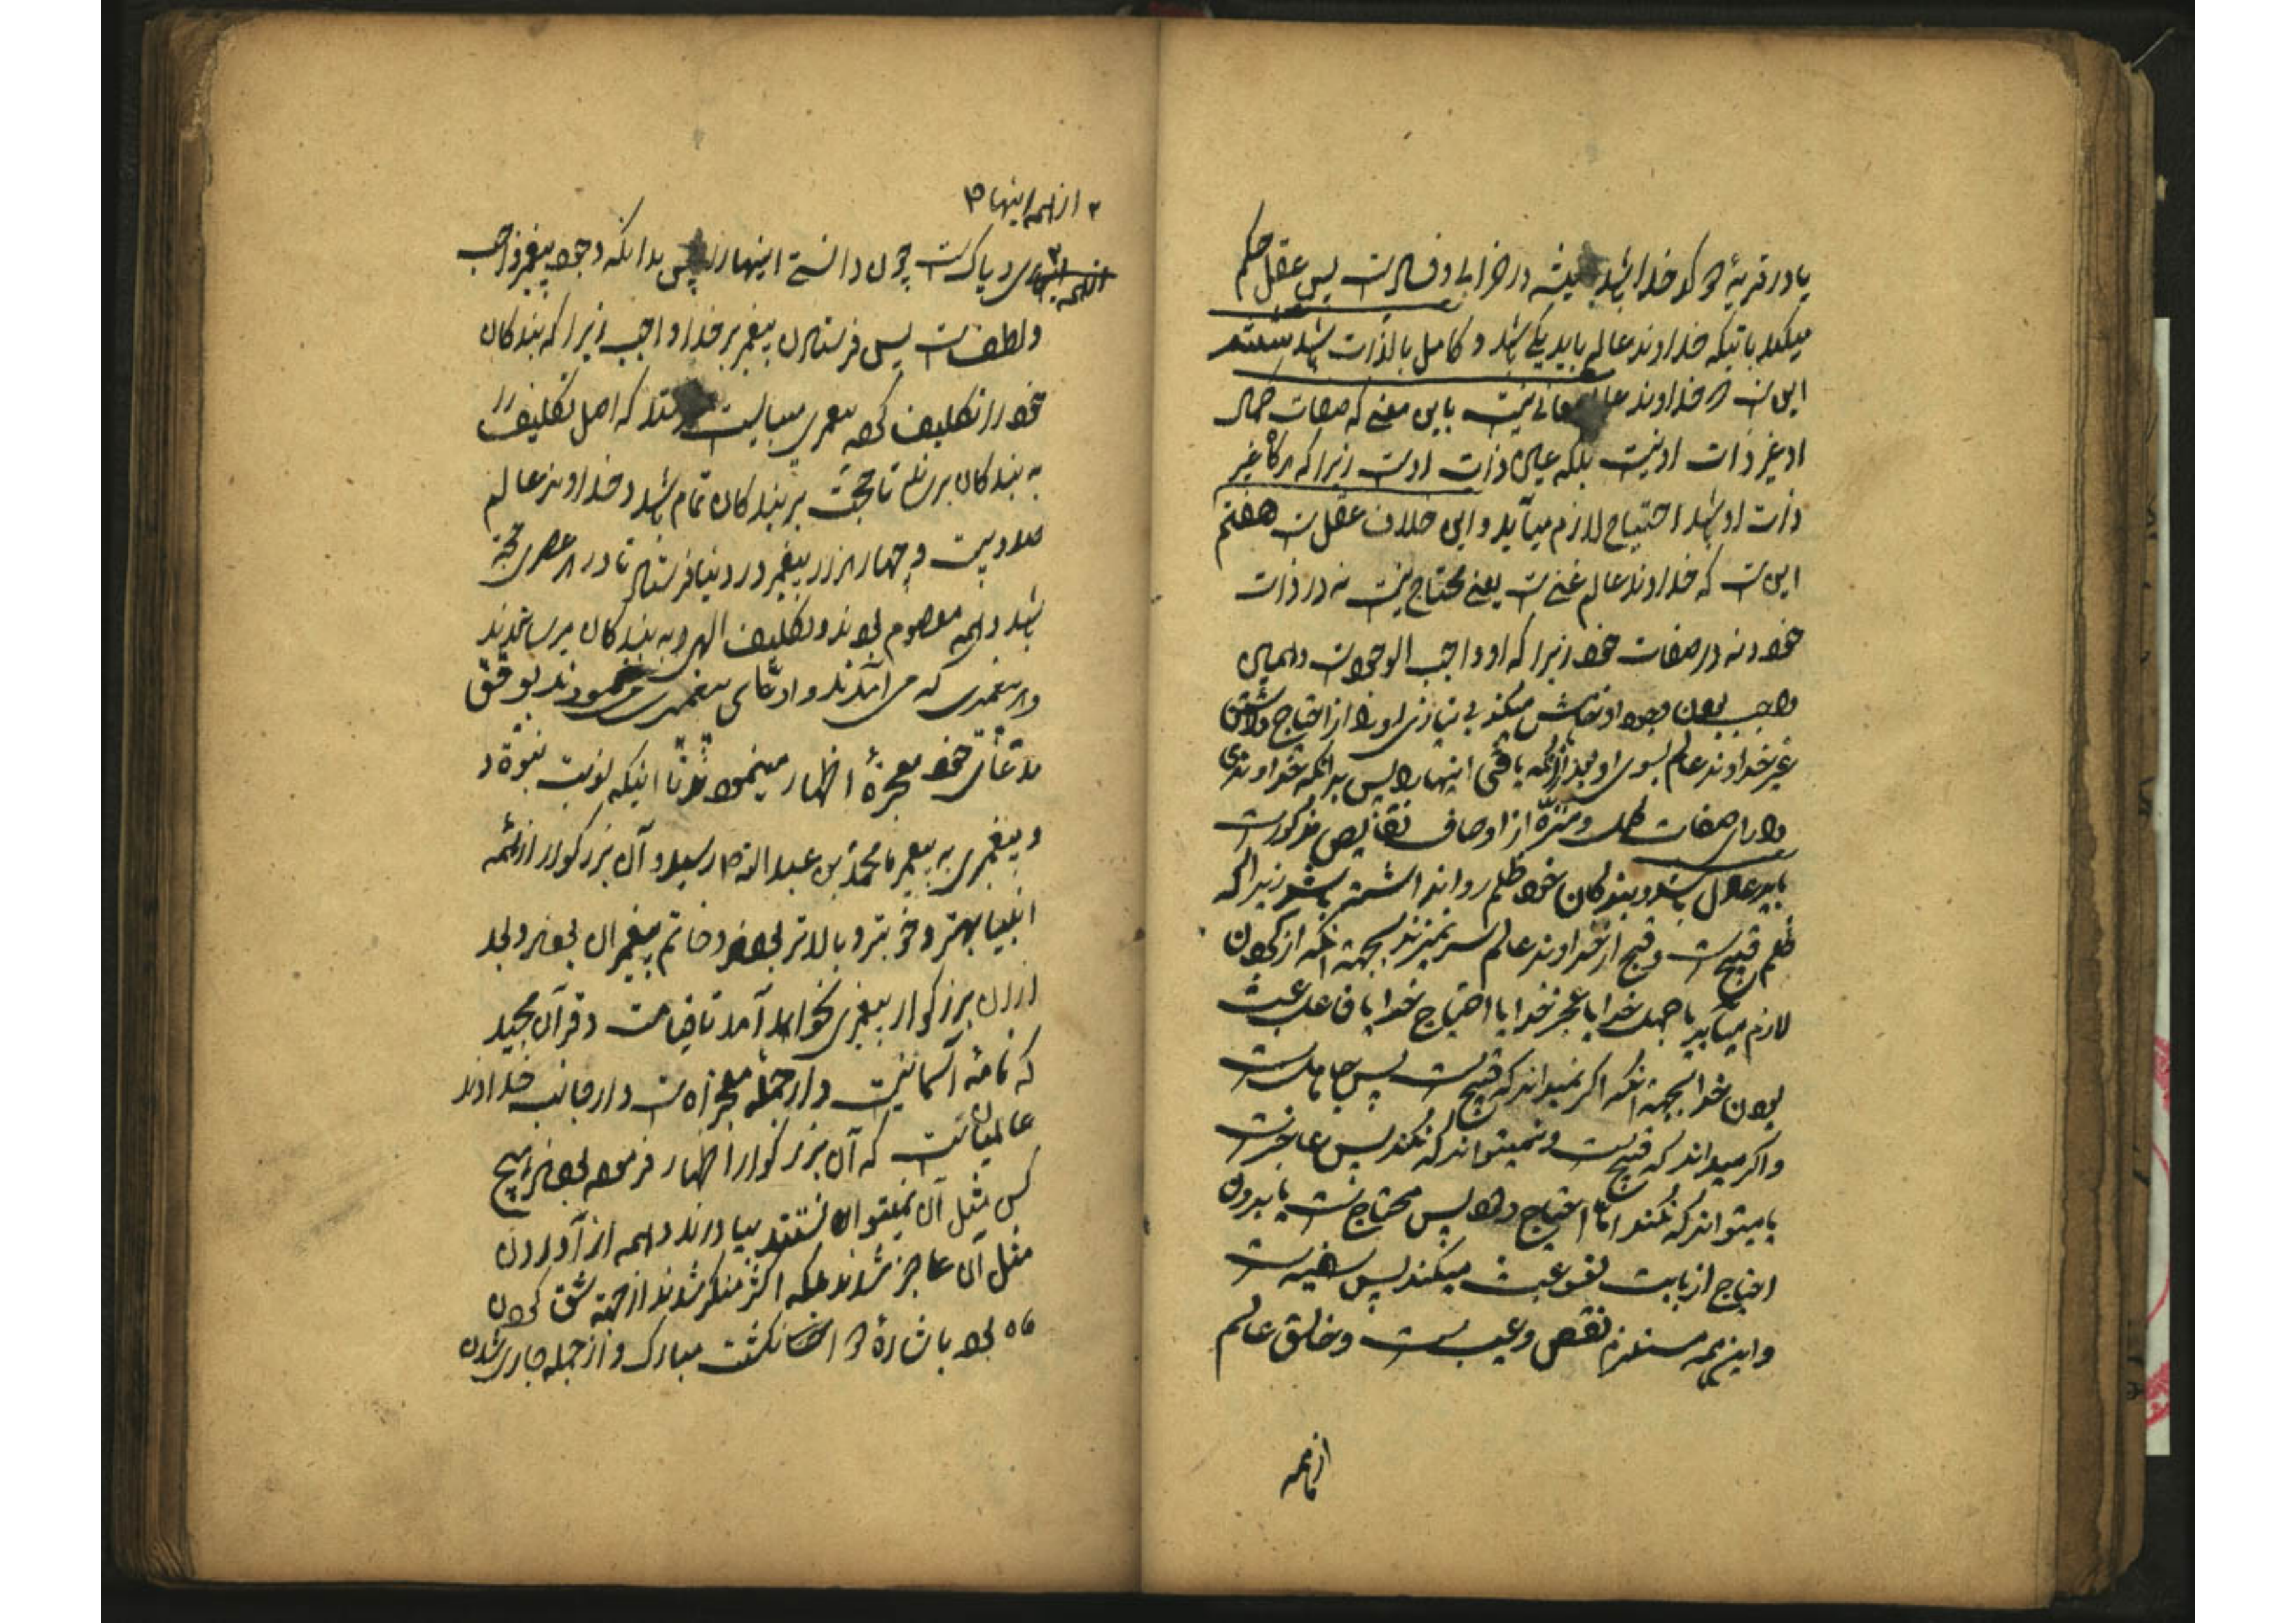 یا در قریهٔ دو کدخدا باشد همیشه در خرابی و فساد است پس عقل حکم
میکند باینکه خداوند عالم باید یکی باشد و کامل بالذات باشد ششم
این است که خداوند عالم معانی نیست باین معنی که صفات کمال
او غیر ذات او نیست بلکه عین ذات اوست زیرا که هرگاه غیر
ذات او باشد احتیاج لازم میآید و این خلاف عقل است هفتم
این است که خداوند عالم غنی است یعنی محتاج نیست نه در ذات
خود و نه در صفات خود زیرا که او واجب الوجود است و همین
واجب بودن وجود او میکند بی نیازی او را از احتیاج داشتن
غیر خداوند عالم بسوی او بعد از آنکه یافتی اینها را پس بدانکه خداوندی
دارای صفات کمال و منزّه از اوصاف نقایص مذکور است
باید عادل باشد و ببندکان خود ظلم روا نداشته باشد زیرا که
ظلم قبیح است و قبیح از خداوند عالم سر نمیزند بجهة آنکه از کردن
لازم میآید یا جهل خدا یا عجز خدا یا احتیاج خدا یا فاعل عبث
بودن خدا بجهة آنکه اکر نمیداند که قبیح است پس جاهل است
و اکر میداند که قبیح است و نمیتواند که نکند پس عاجز است
یا میتواند که نکند امّا احتیاج دارد پس محتاج است یا بدون
احتیاج از بابت لغو و عبث میکند پس سفیه است
و این همه مستلزم نقص و عیب است و خالق عالم
از همه
از همه اینها
بری و پاک است چون دانستی اینها را پس بدانکه وجود پیغمبر واجب
و لطف است پس فرستادن پیغمبر بر خدا واجب زیرا که بندکان
خود را تکلیف کرده پیغمبری میبایست بفرستد که اصل تکلیف را
به بندکان برساند تا حجّت بر بندکان تمام باشد و خداوند عالم
صد و بیست و چهار هزار پیغمبر در دنیا فرستاد تا در هر عصری حجّة
باشد و همه معصوم بودند و تکلیف الهی را به بندکان میرسانیدند
و هر پیغمبری که می آمدند و ادّعای پیغمبری مینمودند بر وفق
مدّعای خود معجزهٔ اظهار مینمودند تا اینکه نوبت نبوّة و
و پیغمبری به پیغمبر ما محمّد بن عبد الله ص رسید و آن بزرکوار از همه
انبیا بهتر و خوبتر و بالاتر بودند و خاتم پیغمبران بودند و بعد
از آن بزرکوار پیغمبری نخواهد آمد تا قیامت و قرآن مجید
که نامهٔ آسمانیست و از جملهٔ معجزات است و از جانب خداوند
عالمیان است که آن بزرکوار اظهار فرموده بودند هیچ
کس مثل آن نمیتوانستند بیاورند و همه از آوردن
مثل آن عاجز شدند بلکه اکثر منکر شدند از جمله شق کردن
ماه بود باشارهٔ دو انکشت مبارک و از جمله جاری شدن